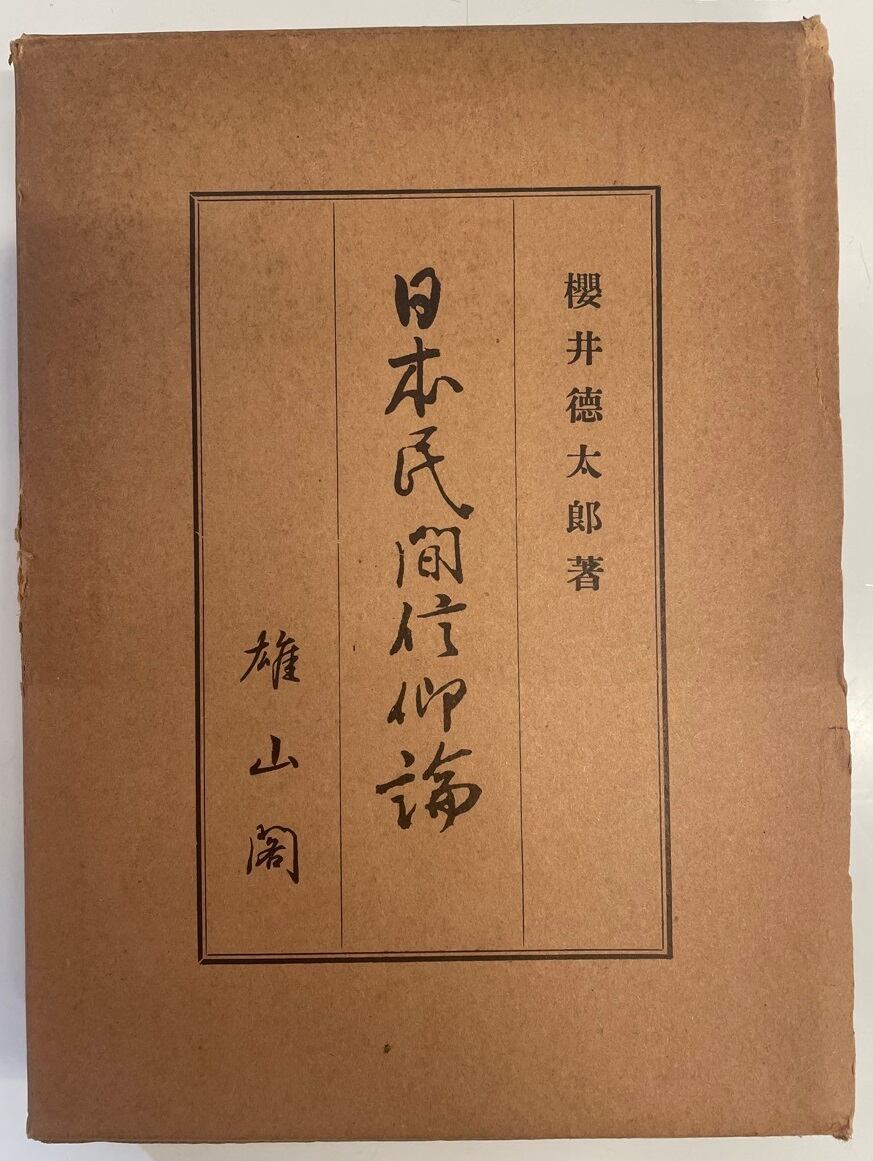 櫻井德太郎著
日本民間信仰論
雄山閣